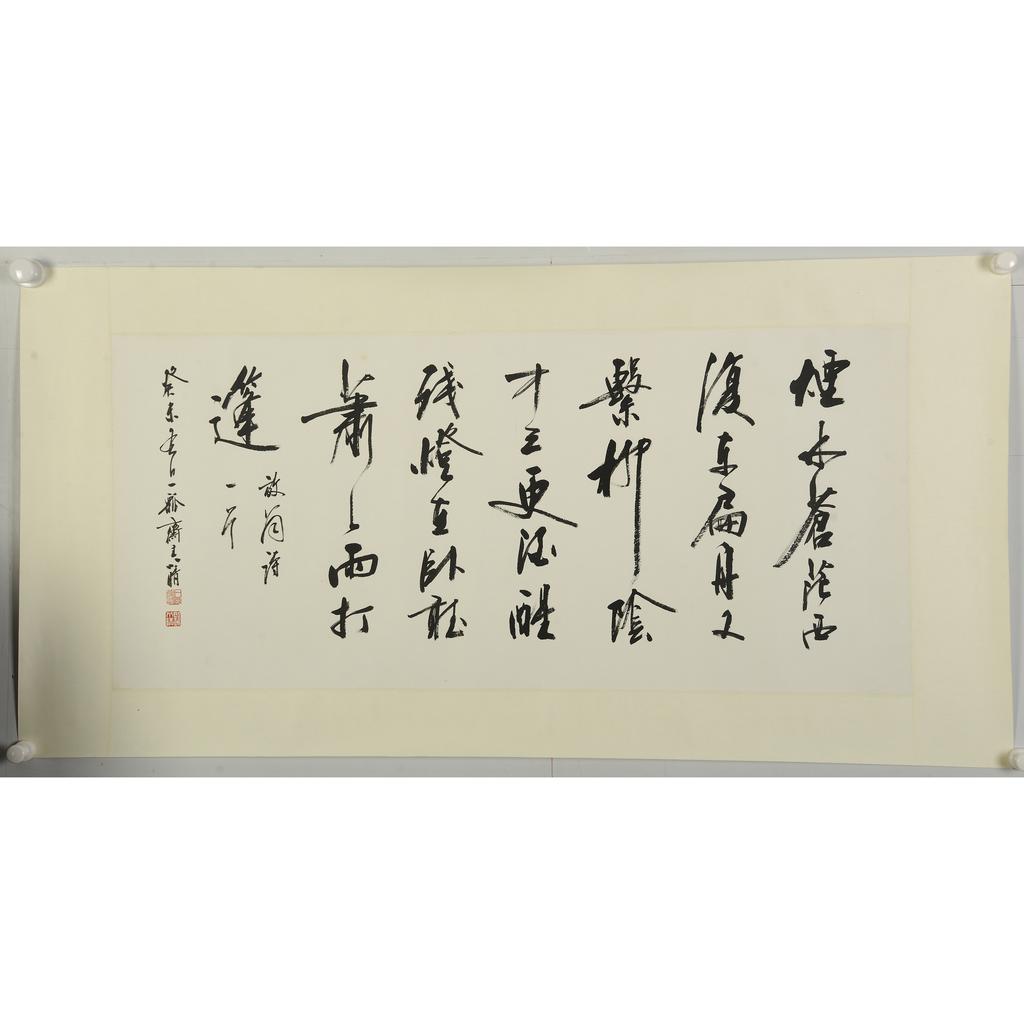 煙水蒼茫西
復東扁舟又
繫柳陰
中三更酒醒
残燈在卧聽
蕭〻雨打
篷
放翁詩
一首
癸未春日一瓢齋